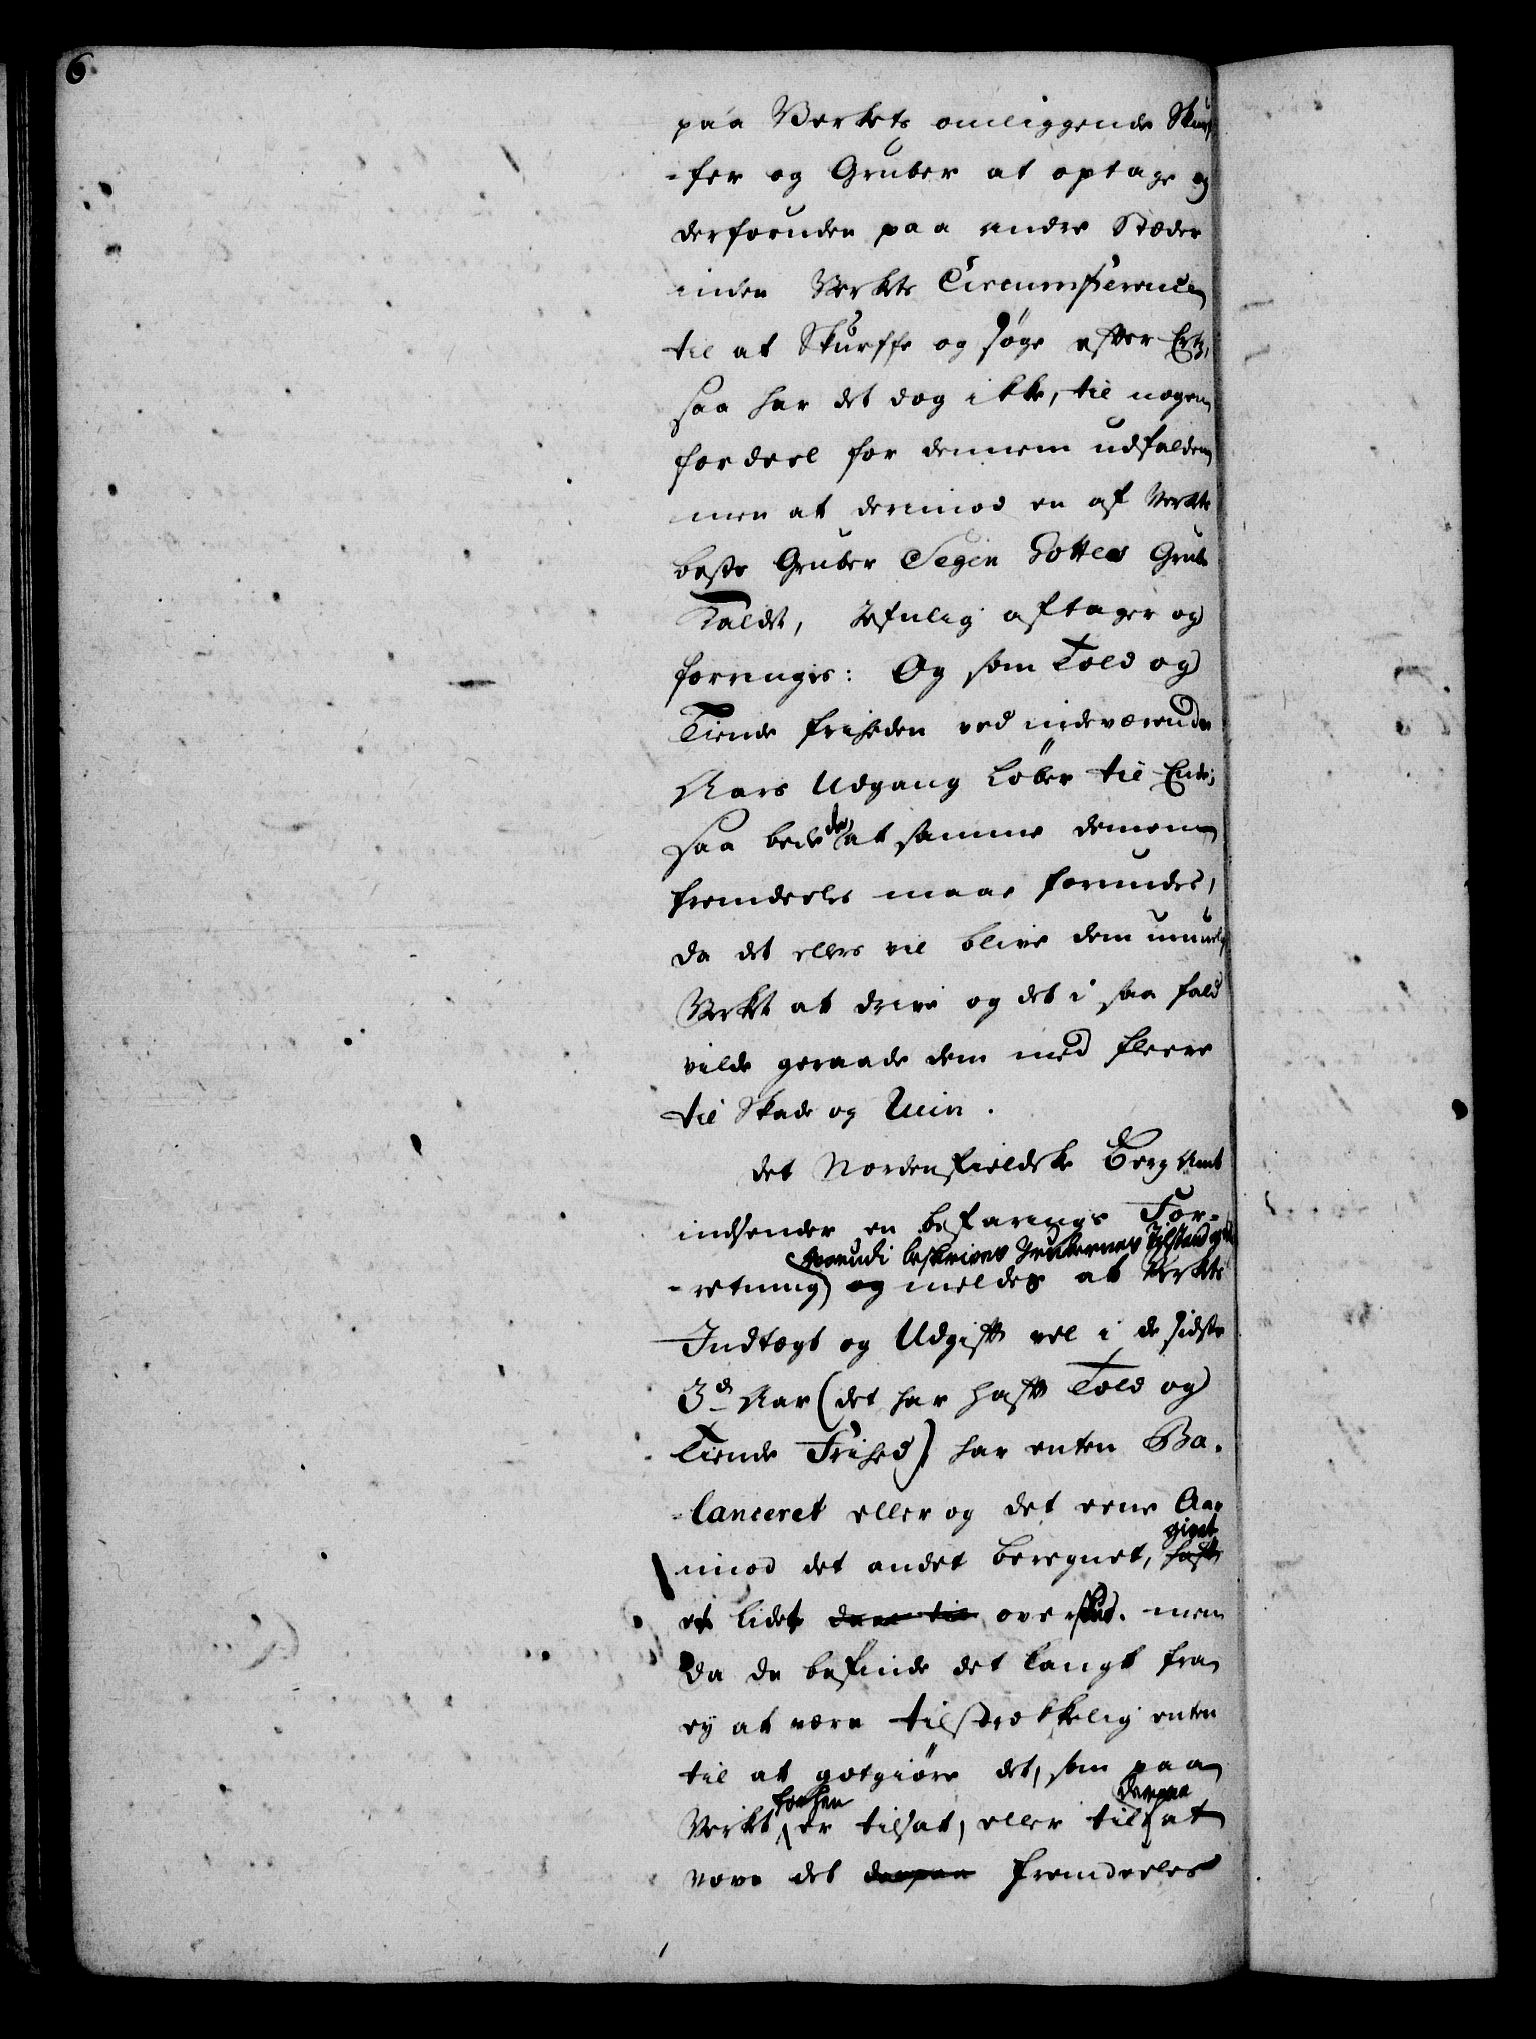 6
paa Verkets omliggende Skurf
-fer og Gruber at optage og
derforuden paa andre Stæder
inden Verkets Circumference
til at Skurffe og søge efter Ertz,
saa har det dog ikke, til nogen
fordeel for dennem udfalden
men at derimod en af Verkets
beste Gruber Segen Gottes Grube
Kaldet, Jefnlig aftager og
forringes: Og som Told og
Tiende friheden ved indeværende
Aars Udgang löber til Ende;
saa bede de at samme dennem
fremdeeles maae forundes,
da det ellers vil blive dem umuelig
Verket at drive og det i saa fald
vilde geraade dem med fleere
til Skade og Ruin.
Det Nordenfieldske Berg Amt
indsender en befarings For-
hvorudi beskrives Grubernes Tilstand og
-retning og meldes at Verkets
Indtægt og Udgift vel i de sidste
3de Aar (det har hafft Told og
Tiende Frihed) har enten Ba-
-lanceret eller og det eene Aar
givet
imod det andet beregnet, hafft
et lidet overskud. men
da de befinde det langt fra
ey at være tilstrækkelig enten
til at godtgiøre det, som paa
forhen derpaa
Verket er tilsat, eller til at
vove det derpaa fremdeeles